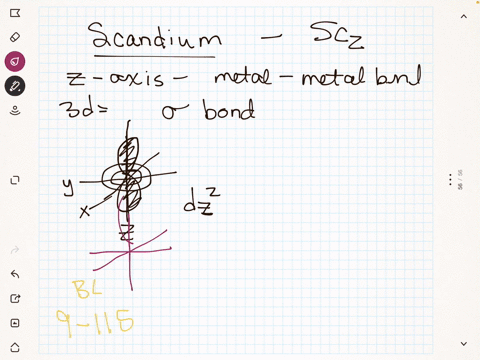 Scandium - Sc2
z-axis - metal-metal bnd
3d= σ bond
y
x
dz²
z
BL
9-115